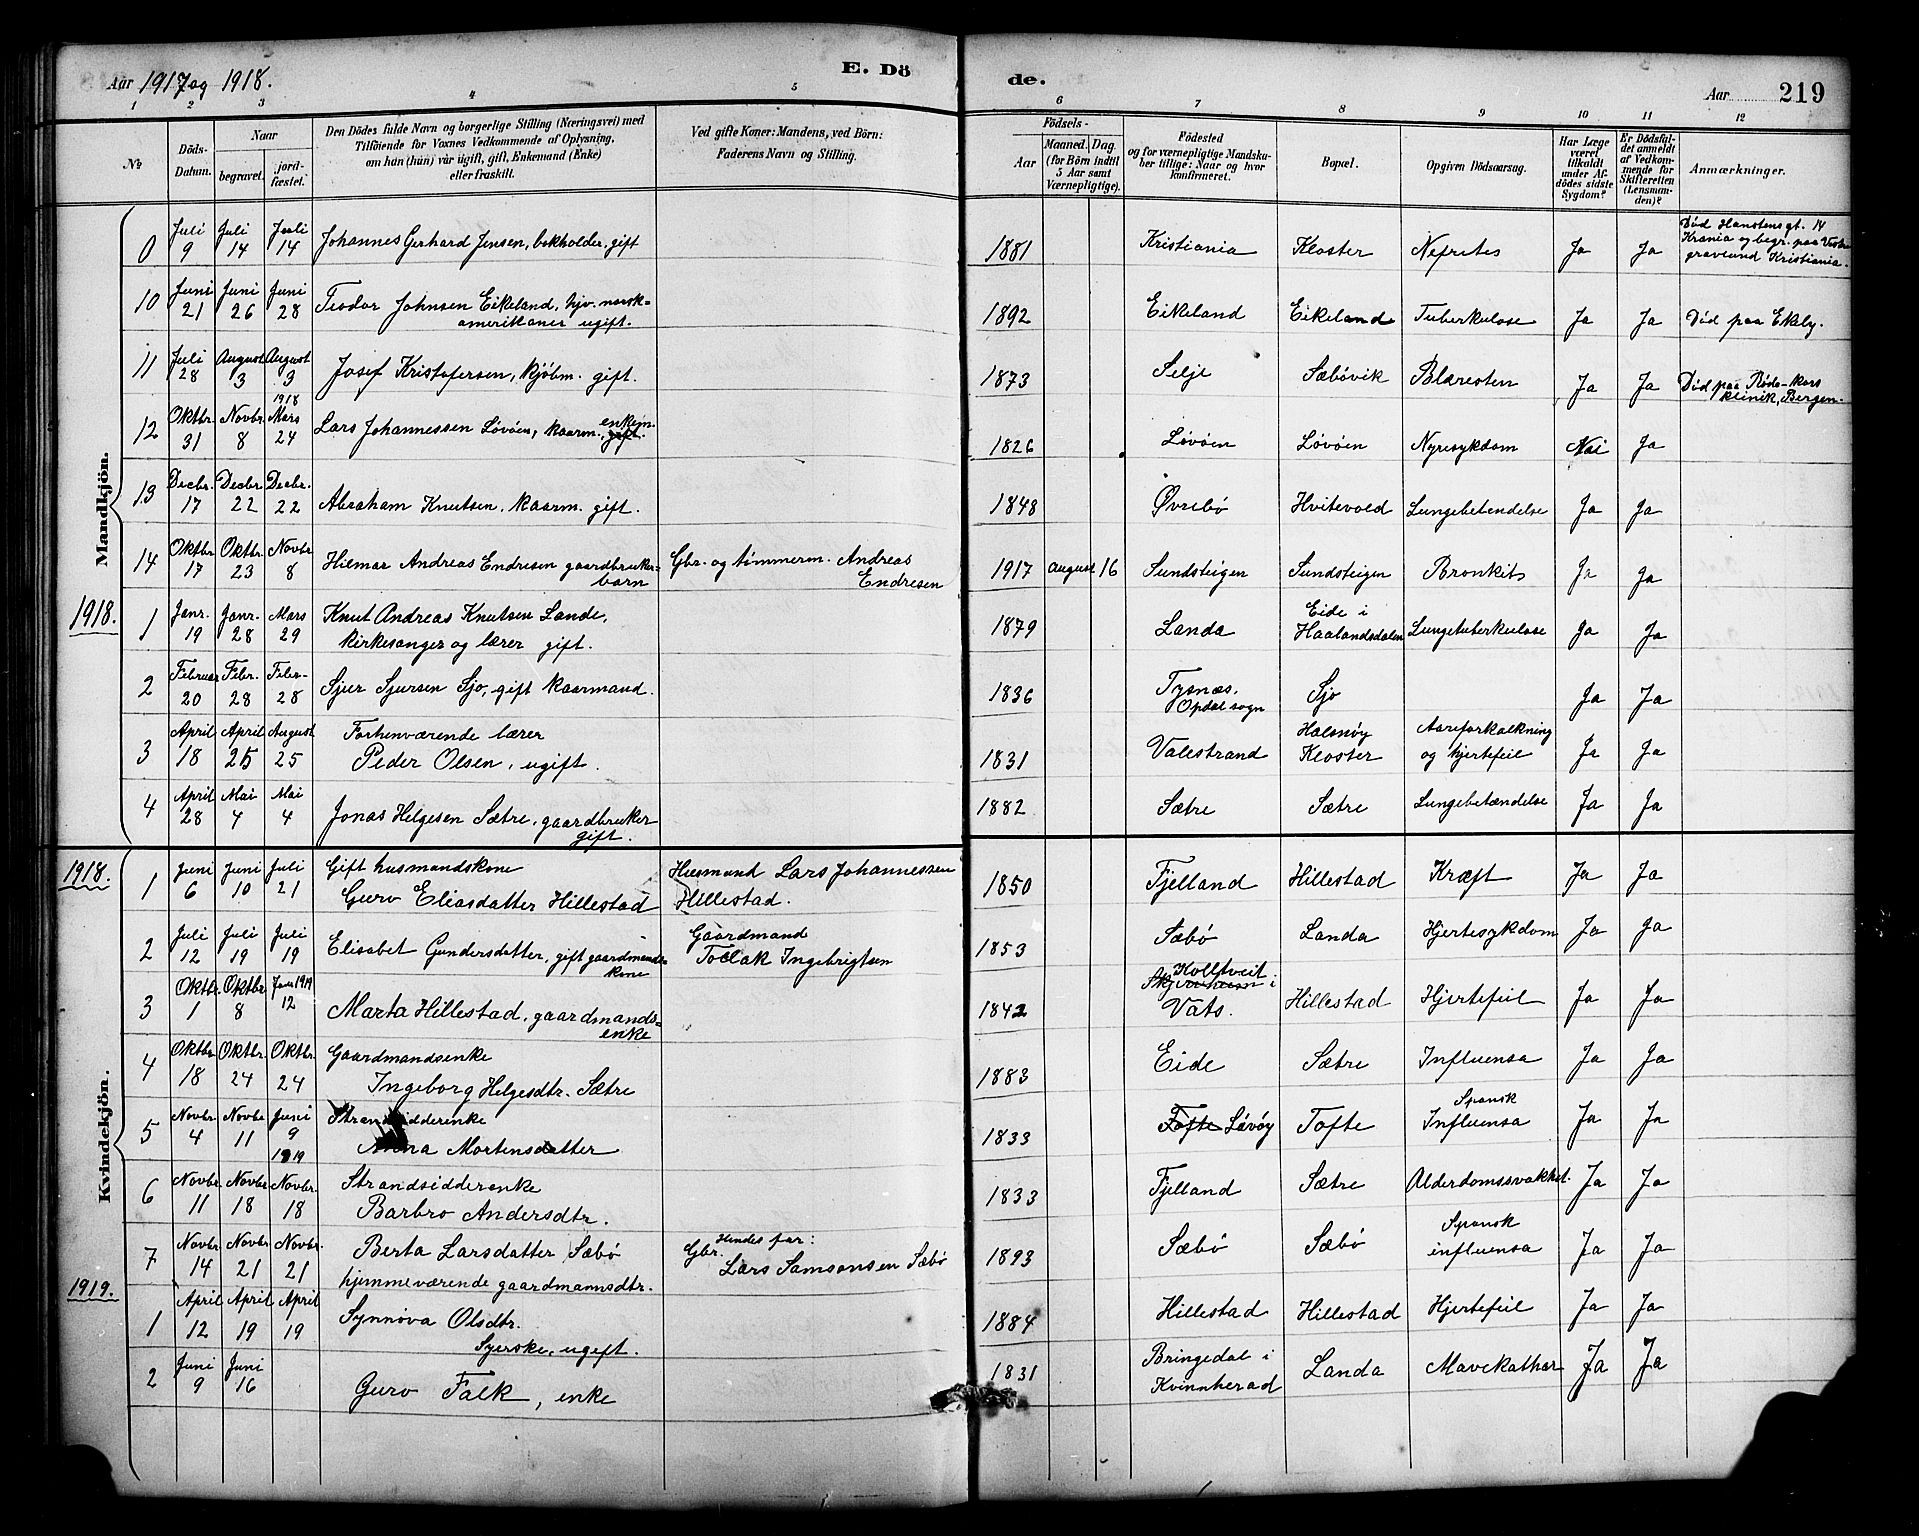 Aar 1917 og 1918. E. Dö de. Aar 219
1 2 3 4 5 6 7 8 9 10 11 12
№ Döds-Datum. Naar begravet. jordfæstet. Den Dödes fulde Navn og borgerlige Stilling (Næringsvei) med Tilföiende for Voxnes Vedkommende af Oplysning, om han (hun) var ugift, gift, Enkemand (Enke) eller fraskilt. Ved gifte Koner: Mandens, ved Börn: Faderens Navn og Stilling. Födsels- Aar Maaned. Dag. (for Börn indtil 5 Aar samt Værnepligtige). Födested og for værnepligtige Mandskaber tillige: Naar og hvor konfirmeret. Bopæl. Opgiven Dödsaarsag. Har Læge været tilkaldt under Afdödes sidste Sygdom? Er Dödsfaldet anmeldt af Vedkommende for Skifteretten (Lensmanden)? Anmærkninger.
Mandkjön.
0 Juli 9 Juli 14 Juli 14 Johannes Gerhard Jensen, bokholder, gift 1881 Kristiania Kloster Nefrites Ja Ja Död Hanstensgt. 14 Krania og begr. paa Vestre gravlund Kristiania.
10 Juni 21 Juni 26 Juni 28 Teodor Johnsen Eikeland, hjv. norsk-amerikaner ugift. 1892 Eikeland Eikeland Tuberkulose Ja Ja Död paa Ekely.
11 Juli 28 August 3 August 3 Josef Kristofersen, kjöbm. gift. 1873 Selje Sæbövik Blæresten Ja Ja Död paa Röde-kors klinik, Bergen.
12 Oktbr. 31 Novbr. 8 1918 Mars 24 Lars Johannessen Lövöen, kaarm., enkem. gift. 1826 Lövöen Lövöen Nyresykdom Nei Ja
13 Decbr. 17 Decbr. 22 Decbr. 22 Abraham Knutsen, kaarm. gift. 1848 Øvrebø Hvitevold Lungebetendelse Ja Ja
14 Oktbr. 17 Oktbr. 23 Novbr 8 Hilmar Andreas Endresen gaardbruker-barn Gbr. og tømmerm. Andreas Endresen 1917 august 16 Sundsteigen Sundsteigen Bronkit Ja Ja
1918.
1 Janr. 19 Janr. 28 Mars 29 Knut Andreas Knutsen Lande, kirkesanger og lærer gift. 1879 Landa Eide i Haalandsdalen Lungetuberkulose Ja Ja
2 Februar 20 Febr. 28 Febr. 28 Sjur Sjursen Sjo, gift kaarmand. 1836 Tysnæs, Opdal sogn Sjo Ja Ja
3 April 18 April 25 August 25 Forhenværende lærer Peder Olsen, ugift. 1831 Valestrand Halsnøy Kloster Aareforkalkning og hjertefeil Ja Ja
4 April 28 Mai 4 Mai 4 Jonas Helgesen Sætre, gaardbruker gift. 1882 Sætre Sætre Lungebetændelse Ja Ja
1918.
Kvindekjön.
1 Juni 6 Juni 10 Juli 21 Gift husmandskone Guro Eliasdatter Hillestad Husmand Lars Johannessen Hillestad. 1850 Fjelland Hillestad Kræft Ja Ja
2 Juli 12 Juli 19 Juli 19 Elisabet Gundersdatter, gift gaardmandskone Gaardmand Tollak Ingebrigtsen 1853 Sæbø Landa Hjertesykdom Ja Ja
3 Oktbr. 1 Oktbr 8 Janr 1919 12 Marta Hillestad, gaardmands-enke 1842 Kolltveit i Vats. Hillestad Hjertefeil Ja Ja
4 Oktbr 18 Oktbr. 24 Oktbr. 24 Gaardmandsenke Ingeborg Helgesdtr. Sætre 1883 Eide Sætre Influensa Ja Ja
5 Novbr. 4 Novbr 11 Juni 9 1919 Strandsidderenke Anna Mortensdatter 1833 Tofte Løvøy Tofte Spansk Influensa Ja Ja
6 Novbr. 11 Novbr. 18 Novbr. 18 Strandsidderenke Barbro Andersdtr. 1833 Fjelland Sætre Alderdomssvakhet. Ja Ja
7 Novbr. 14 Novbr. 21 Novbr. 21 Berta Larsdatter Sæbø hjemmeværende gaardmannsdtr. Hendes far: Gbr. Lars Samsonsen Sæbø 1893 Sæbø Sæbø Spansk influensa Ja Ja
1919.
1 April 12 April 19 April 19 Synnøva Olsdtr. Syerske, ugift. 1884 Hillestad Hillestad Hjertefeil Ja Ja
2 Juni 9 Juni 16 Guro Falk, enke 1831 Bringedal i Kvinnherad Landa Mavekathar Ja Ja